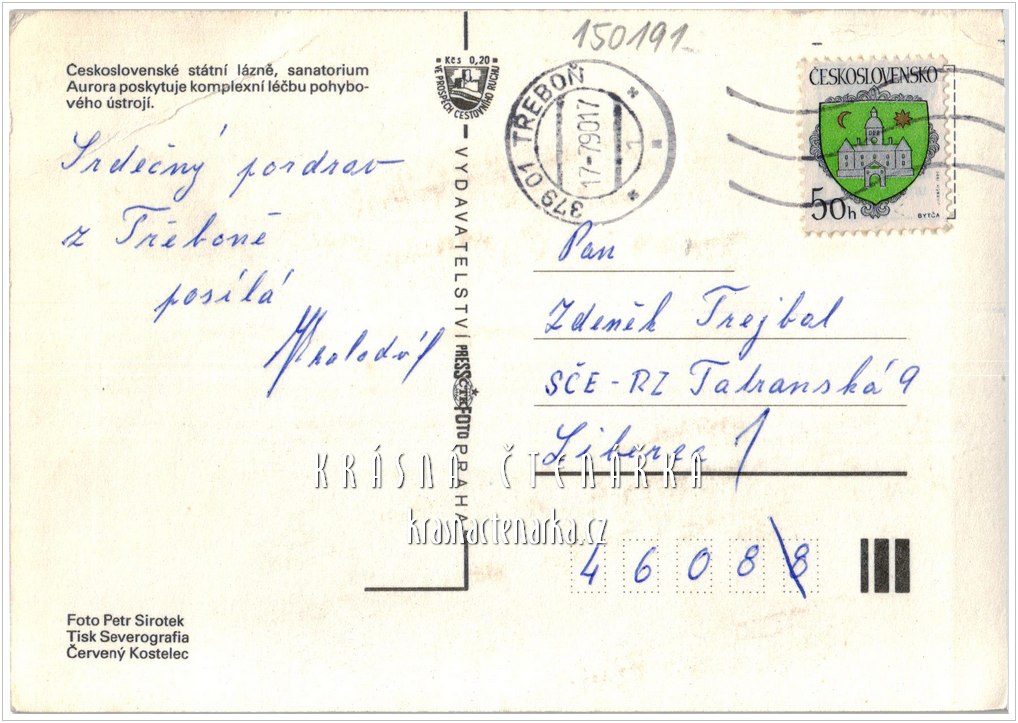 150191
Československé státní lázně, sanatorium
Aurora poskytuje komplexní léčbu pohybo-
vého ústrojí.
Kčs 0,20
VE PROSPĚCH CESTOVNÍHO RUCHU
379 01 TŘEBOŇ
17-7 90 17
1
ČESKOSLOVENSKO
50h
BYTČA
Srdečný pozdrav
z Třeboně
posílá
VYDAVATELSTVÍ PRESSFOTO PRAHA
ČTK
Pan
Zdeněk Trejbal
SČE-RZ Tatranská 9
Liberec 1
KRÁSNÁ ČTENÁŘKA
krasnactenarka.cz
4 6 0 8 8
Foto Petr Sirotek
Tisk Severografia
Červený Kostelec